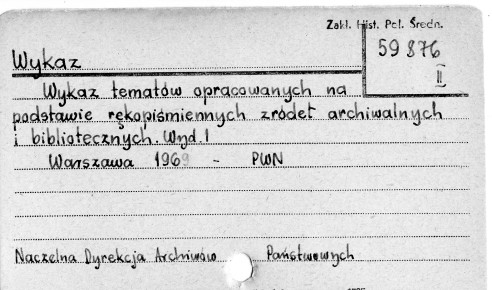 Zakł. Hist. Pol. Średn.
59 876
II
Wykaz
Wykaz tematów opracowanych na
podstawie rękopiśmiennych źródeł archiwalnych
i bibliotecznych. Wyd. 1
Warszawa 1969 - PWN
Naczelna Dyrekcja Archiwów Państwowych